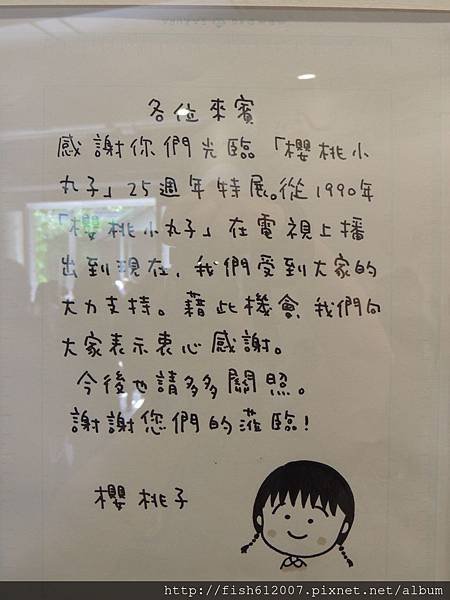 各位來賓
感謝你們光臨「櫻桃小
丸子」25週年特展。從1990年
「櫻桃小丸子」在電視上播
出到現在、我們受到大家的
大力支持。藉此機會、我們向
大家表示衷心感謝。
今後也請多多關照。
謝謝您們的蒞臨!
櫻桃子
http://fish612007.pixnet.net/album